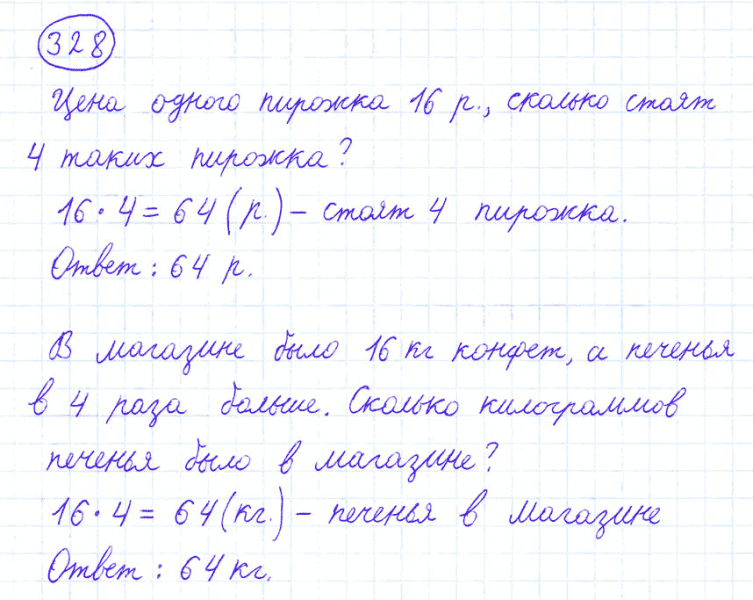 328
Цена одного пирожка 16 р., сколько стоят
4 таких пирожка?
16 · 4 = 64 (р.) – стоят 4 пирожка.
Ответ : 64 р.
В магазине было 16 кг конфет, а печенья
в 4 раза больше. Сколько килограммов
печенья было в магазине?
16 · 4 = 64 (кг.) – печенья в магазине
Ответ : 64 кг.